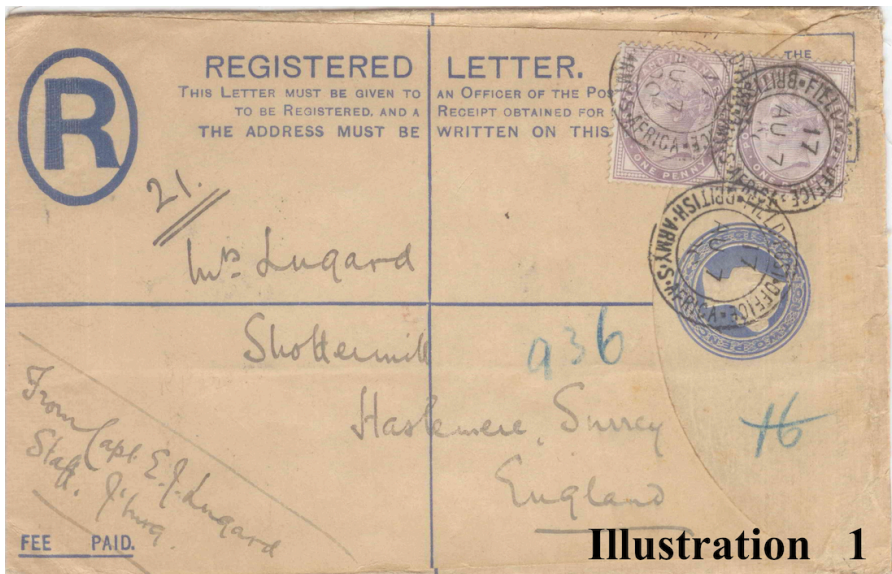 R
REGISTERED LETTER.
THIS LETTER MUST BE GIVEN TO AN OFFICER OF THE POS
TO BE REGISTERED, AND A RECEIPT OBTAINED FOR
THE ADDRESS MUST BE WRITTEN ON THIS
THE
ONE PENNY
FIELD POST OFFICE
BRITISH ARMY S. AFRICA
17
AU 7
FIELD POST OFFICE
BRITISH ARMY S. AFRICA
17
AU 7
21.
Mrs Lugard
Shottermill
936
Haslemere, Surrey
16
England
From Capt. E. J. Lugard
Staff. J'burg.
FEE PAID.
Illustration 1